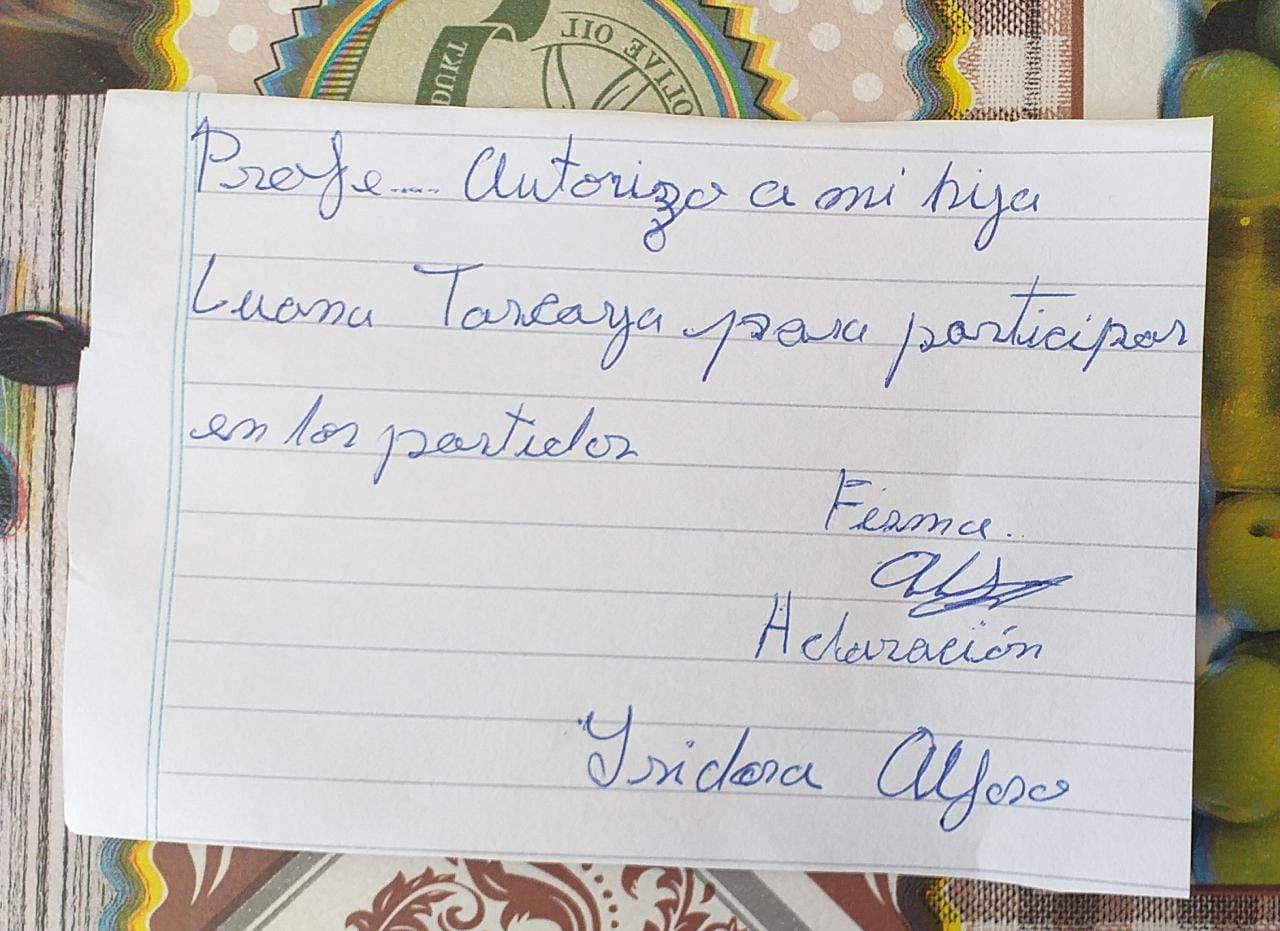 OLIVE OIL
Profe.... Autorizo a mi hija
Luana Tarcaya para participar
en los partidos
Firma..
Aclaración
Ysidora Alfaro